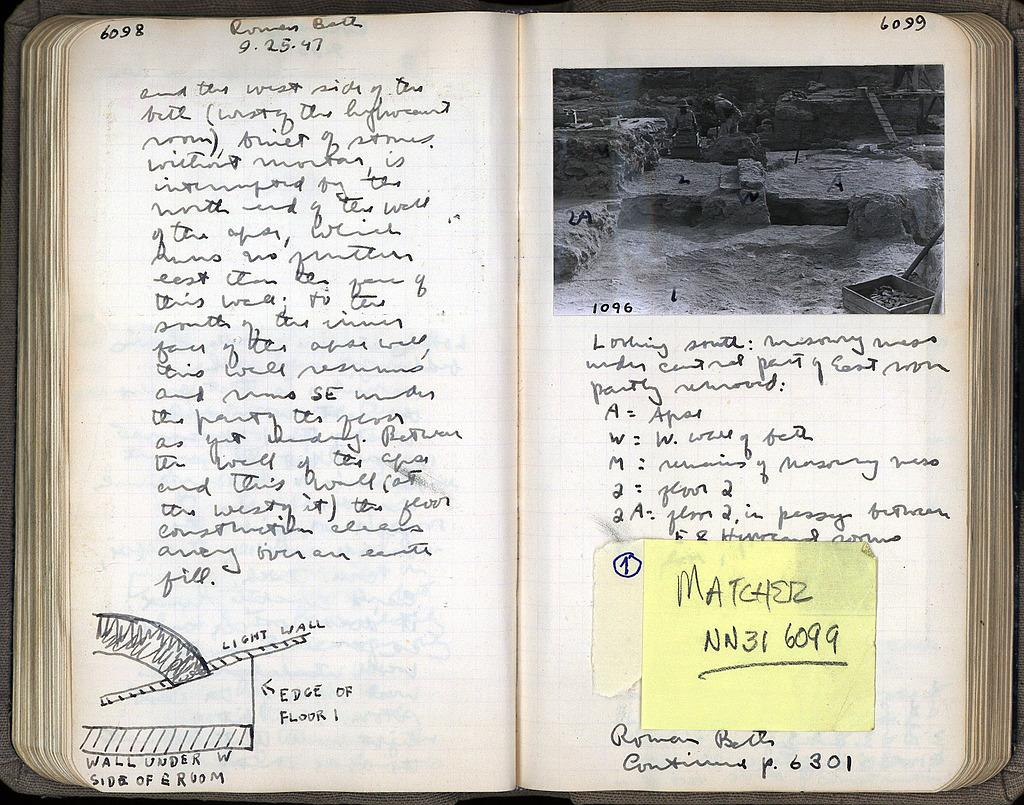 6098
Roman Bath
9.25.47
and the west side of the
bath (west of the hypocaust
room), built of stones
without mortar, is
interrupted by the
north end of the wall
of the apse, which
runs no further
east than the face of
this wall; to the
south of the inner
face of the apse wall,
this wall resumes
and runs SE under
the part of the floor
as yet standing. Between
the wall of the apse
and this wall (at
the west of it) the floor
construction
away over an earth
fill.
LIGHT WALL
EDGE OF
FLOOR 1
WALL UNDER W
SIDE OF E ROOM
6099
2
A
W
2A
1
1096
Looking south: masonry mass
under central part of East room
partly removed:
A = Apse
W = W. wall of bath
M = remains of masonry mass
2 = floor 2
2A = floor 2, in passage between
E & Hypocaust rooms
1
MATCHER
NN31 6099
Roman Bath
Continued p. 6301